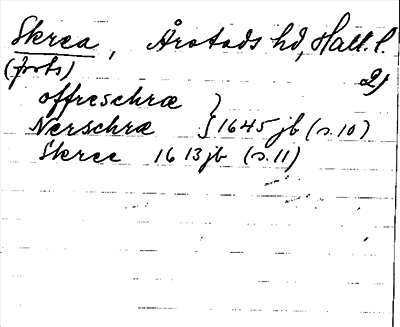 Skrea, Årstads hd, Hall. l.
(forts) 2)
offreschræ }
Nerschræ } 1645 jb (s.10)
Skree 1613 jb (s.11)